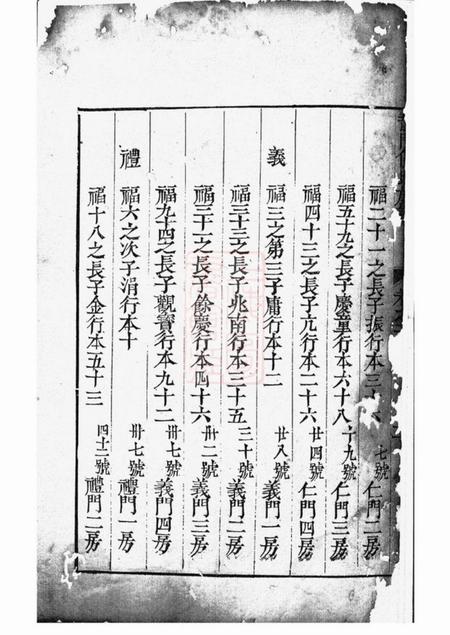 福二十一之長子振行本三十 七號仁門二房
福五十九之長子慶童行本六十八 十九號仁門三房
福四十三之長子元行本二十六 廿四號仁門四房
義
福三之第三子庸行本十二 廿八號義門一房
福三十三之長子兆南行本三十五 三十號義門二房
福三十一之長子餘慶行本四十六 卅二號義門三房
福九十四之長子觀寶行本九十二 卅七號義門四房
禮
福六之次子涓行本十 卅七號禮門一房
福十八之長子金行本五十三 四十二號禮門二房